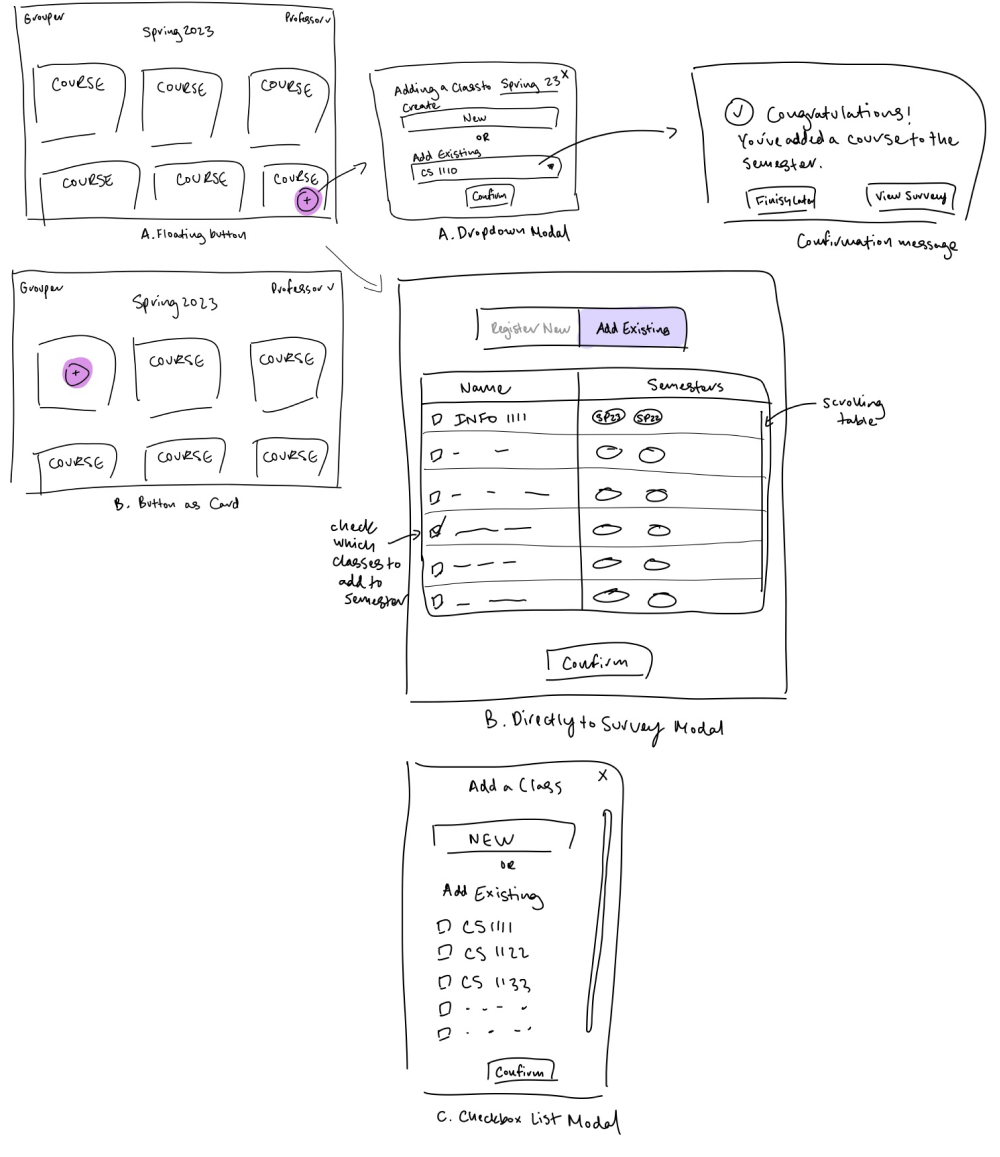 Grouper
Professor v
Spring 2023
COURSE
COURSE
COURSE
COURSE
COURSE
COURSE
+
A. Floating button
Adding a Class to Spring 23
X
Create
New
OR
Add Existing
CS 1110
Confirm
A. Dropdown Modal
Congratulations!
You've added a course to the
semester.
Finish Later
View Survey
Confirmation message
Grouper
Professor v
Spring 2023
+
COURSE
COURSE
COURSE
COURSE
COURSE
B. Button as Card
Register New
Add Existing
Name
Semesters
INFO 1111
SP23
SP22
scrolling
table
check
which
classes to
add to
Semester
Confirm
B. Directly to Survey Modal
Add a Class
X
NEW
OR
Add Existing
CS 1111
CS 1122
CS 1133
Confirm
C. Checkbox List Modal